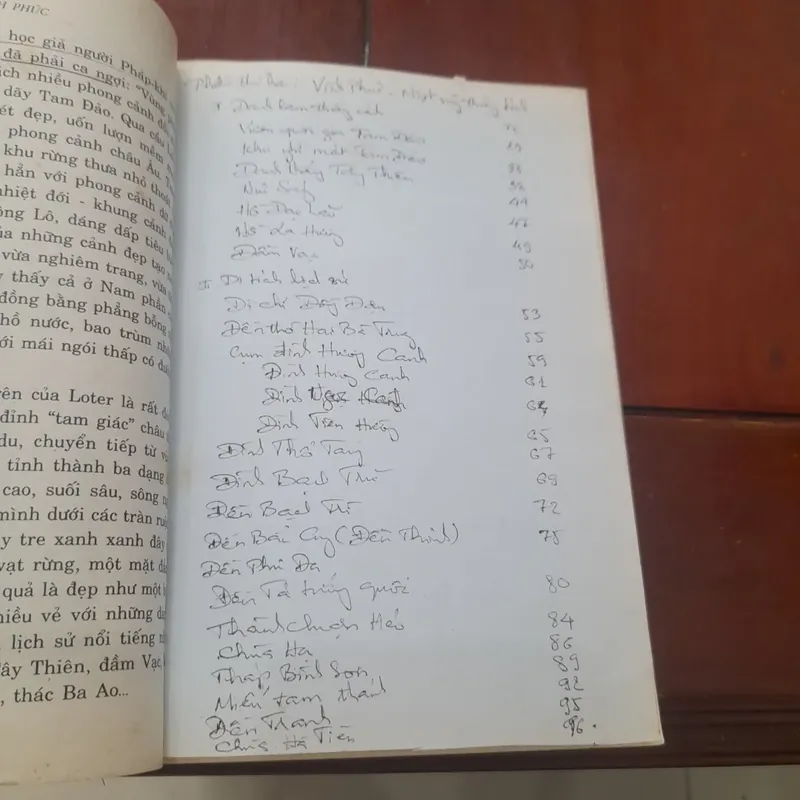 H PHÚC
học giả người Pháp-khi
đã phải ca ngợi: "Vùng
ích nhiều phong cảnh
dãy Tam Đảo. Qua cầu
ét đẹp, uốn lượn mềm
phong cảnh châu Âu.
khu rừng thưa nhỏ
hẳn với phong cảnh
nhiệt đới - khung cảnh
ông Lô, dáng dấp tiêu
ủa những cảnh đẹp tạo
vừa nghiêm trang, vừa
y thấy cả ở Nam phần
đồng bằng phẳng bỗng
hồ nước, bao trùm
ới mái ngói thấp có
rên của Loter là rất
đỉnh "tam giác" châu
du, chuyển tiếp từ
tỉnh thành ba dạng
cao, suối sâu, sông
mình dưới các tràn
y tre xanh xanh
vạt rừng, một mặt
quả là đẹp như một
hiều vẻ với những
lịch sử nổi tiếng
ây Thiên, đầm Vạc,
, thác Ba Ao...
Vĩnh Phúc -
I Danh lam thắng cảnh
Vườn quốc gia Tam Đảo 19
Khu nghỉ mát Tam Đảo
Danh thắng Tây Thiên
Núi Sáng
Hồ Đại Lải 44
Hồ Xạ Hương 47
Đầm Vạc 49
50
II Di tích lịch sử
Di chỉ Đồng Đậu 53
Đền thờ Hai Bà Trưng 55
Cụm đình Hương Canh 59
Đình Hương Canh 61
Đình Ngọc Canh 64
Đình Tiên Hường 65
Đình Thổ Tang 67
Đình Bạch Trữ 69
Đền Bạch Trì 72
Đền Bắc Cung (Đền Thính) 75
Đền Phú Đa
Đền Tả tướng quốc 80
Thánh chuẩn Héo 84
Chùa Hà 86
Tháp Bình Sơn 89
Miếu tam thánh 92
Đền Tranh 95
Chùa Hà Tiên 96